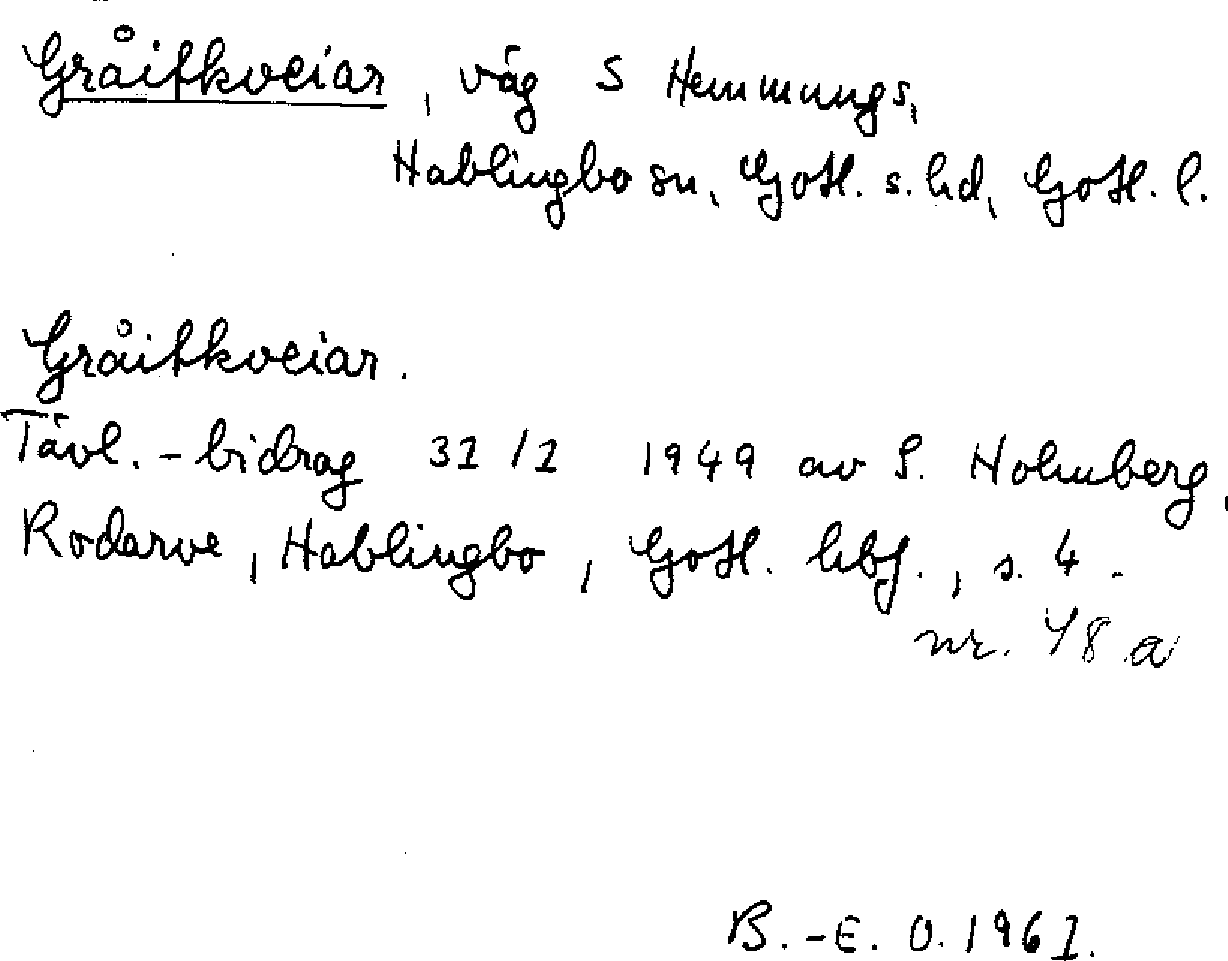 Gråitkveiar, väg S Hemmungs,
Hablingbo sn, Gotl. s. hd, Gotl. l.
Gråitkveiar.
Tävl.-bidrag 31/1 1949 av S. Holmberg,
Rodarve, Hablingbo, Gotl. hbf., s. 4.
nr. 48 a
B.-E. O. 1961.